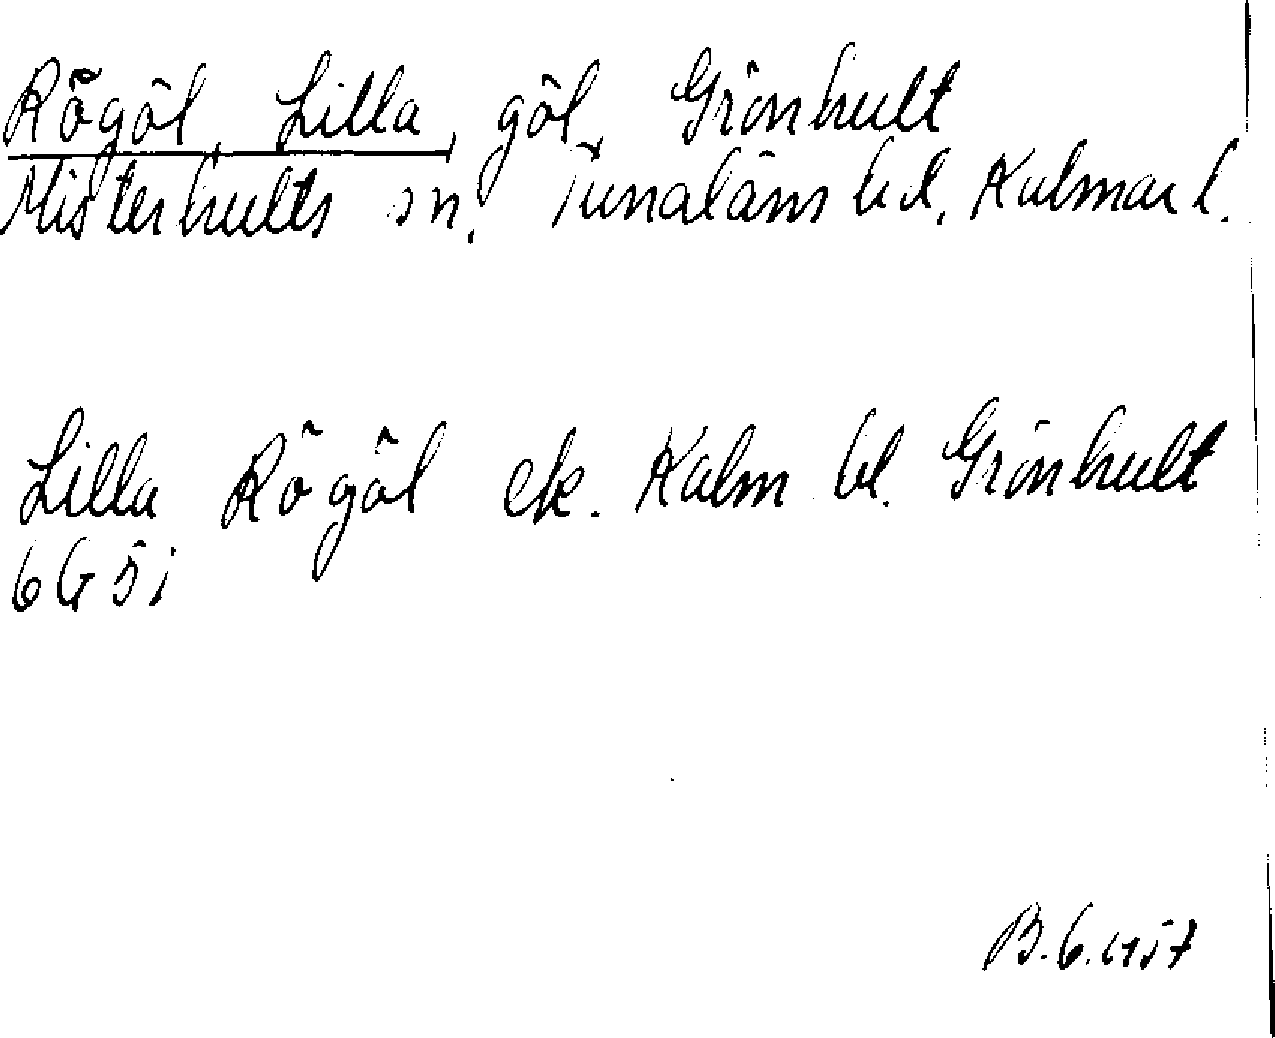 Rögöl, Lilla, göl, Grönhult
Misterhults sn, Tunaläns hd, Kalmar l.
Lilla Rögöl ek. Kalm bl. Grönhult
6G 5i
B.G. 1957